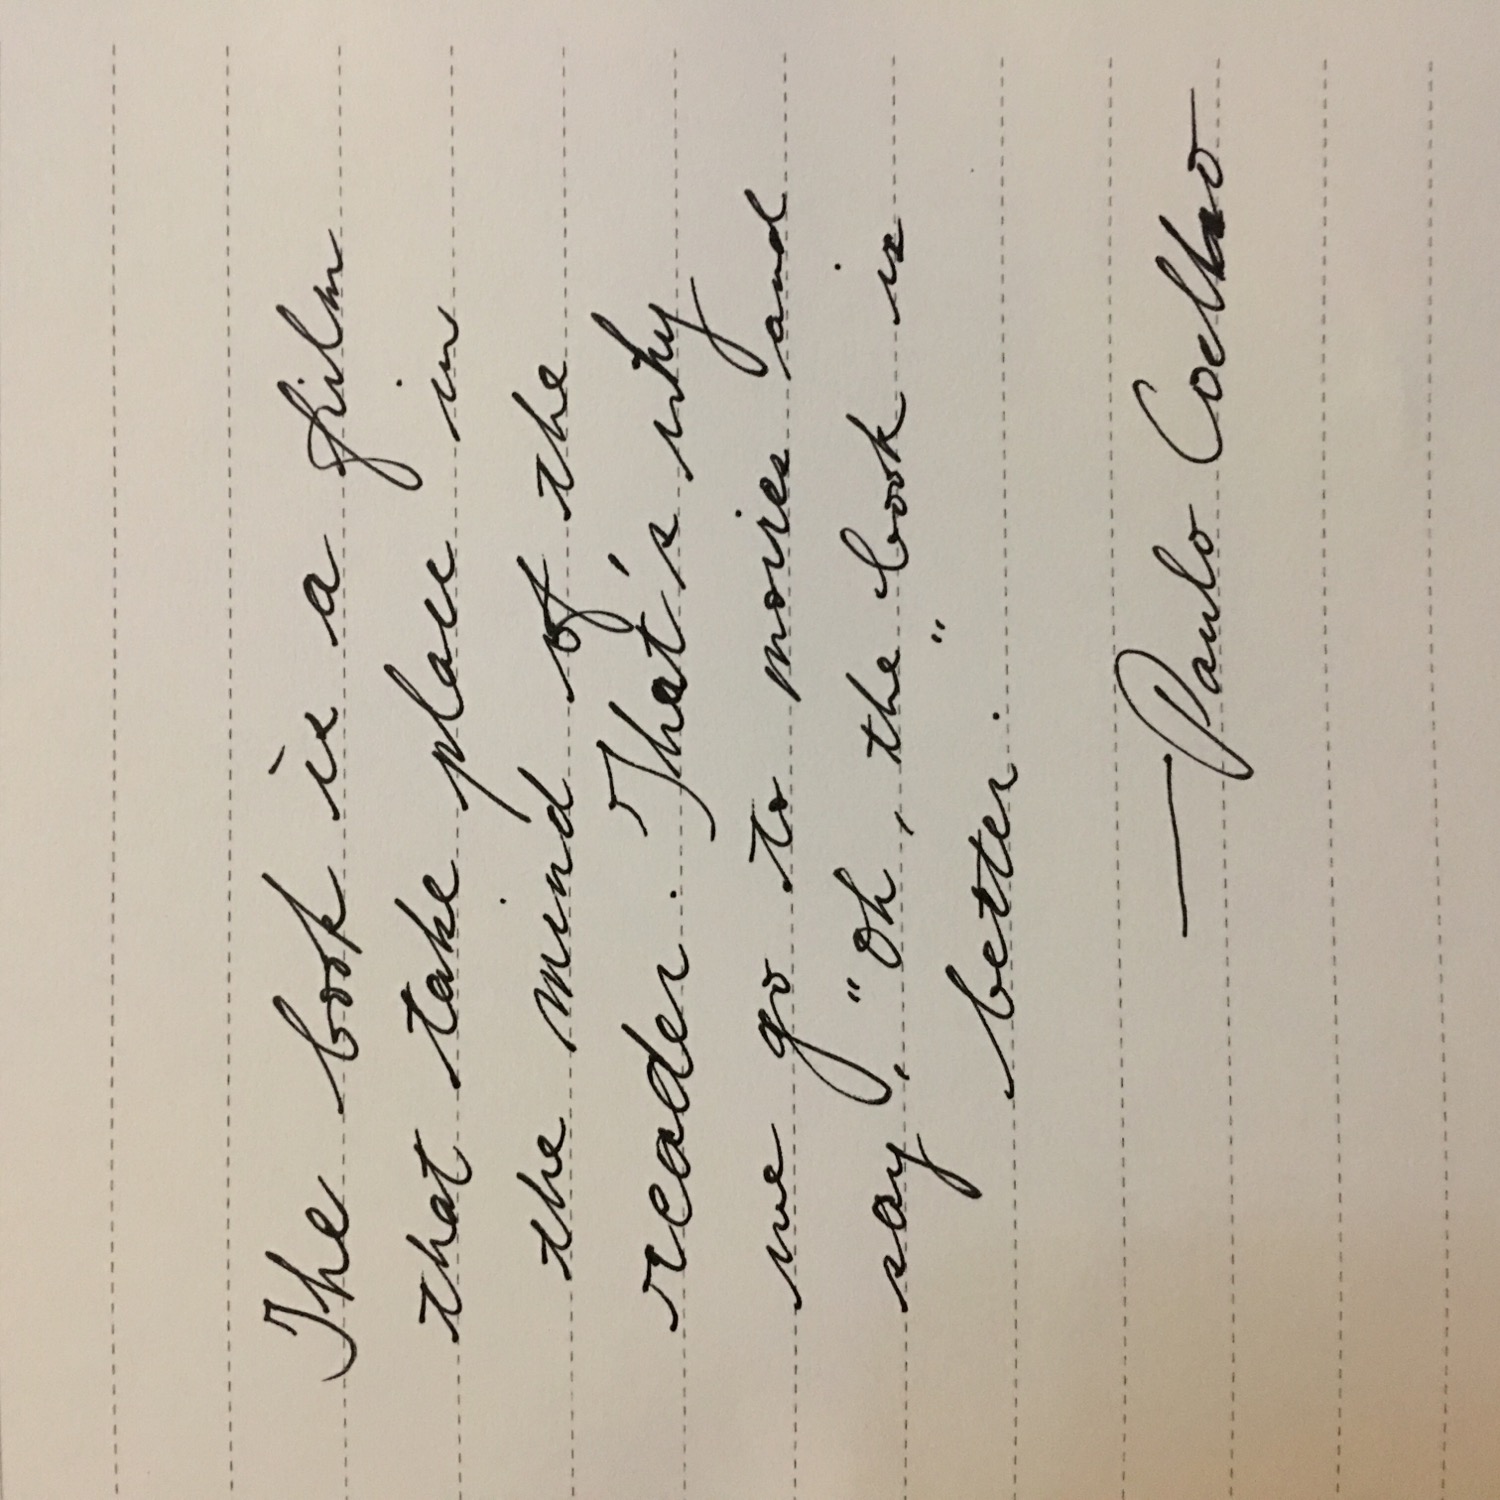 The book is a film
that take place in
the mind of the
reader. That's why
we go to movies and
say, "Oh, the book is
better."
—Paulo Coelho